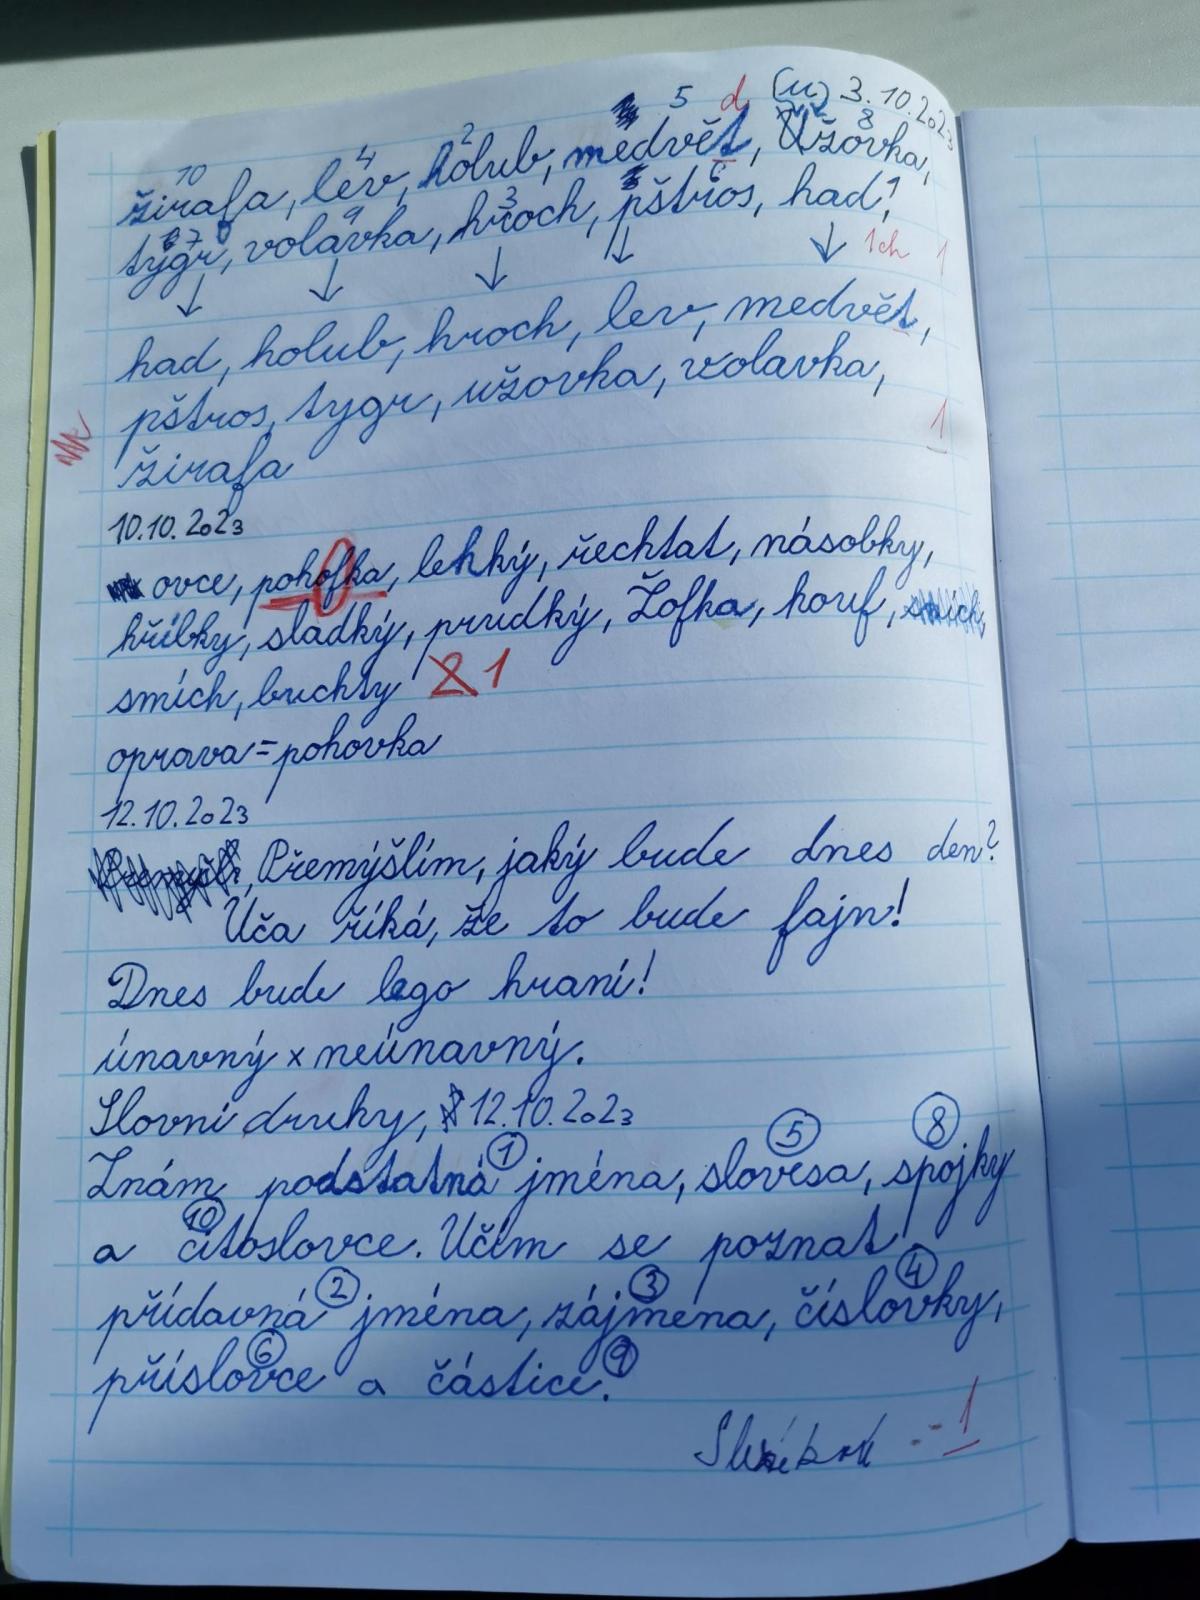 5 d (u) 3.10.2023
10 4 2 8
žirafa, lev, holub, medvět, Užovka,
7 9 3 6 1
tygr, volavka, hroch, pštros, had,
1ch 1
had, holub, hroch, lev, medvět,
pštros, tygr, užovka, volavka,
1
žirafa
10.10.2023
ovce, pohofka, lehký, řechtat, násobky,
hřibky, sladký, prudký, Žofka, houf,
smích, buchty 2 1
oprava = pohovka
12.10.2023
Přemýšlím, jaký bude dnes den?
Úča říká, že to bude fajn!
Dnes bude lego hraní!
únavný x neúnavný.
Slovní druhy, 12.10.2023
1 5 8
Znám podstatná jména, slovesa, spojky
10
a citoslovce. Učím se poznat
2 3 4
přídavná jména, zájmena, číslovky,
6 9
příslovce a částice.
1